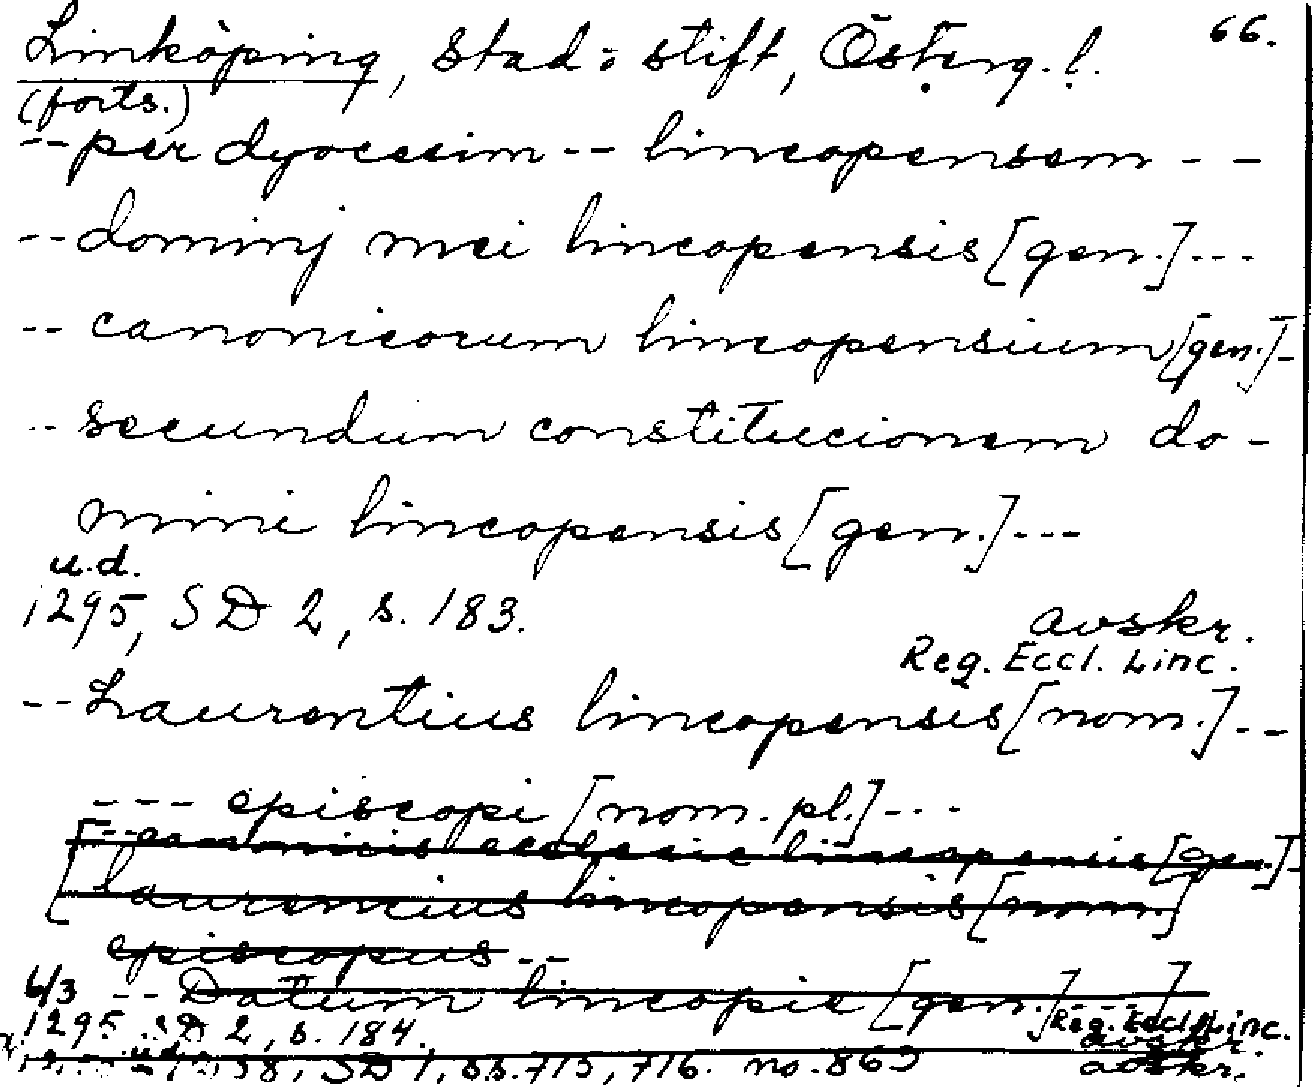 Linköping, stad: stift, Österg. l. 66.
(forts.)
-- per dyocesim -- lincopensem - -
-- dominj mei lincopensis [gen.] ---
-- canonicorum lincopensium [gen.] -
-- secundum constitucionem do-
mini lincopensis [gen.] ---
u.d.
1295, SD 2, s. 183. avskr.
Reg. Eccl. Linc.
-- Laurentius lincopensis [nom.] --
--- episcopi [nom. pl.] ---
[-- canonicis ecclesie lincopensis [gen.]
[laurencius lincopensis [nom.]
episcopus --
6/3 -- Datum lincopie [gen.] --- ]
1295 SD 2, s. 184. Reg. Eccl. Linc.
avskr.
u.d. SD 1, ss. 715, 716. no. 869 avskr.